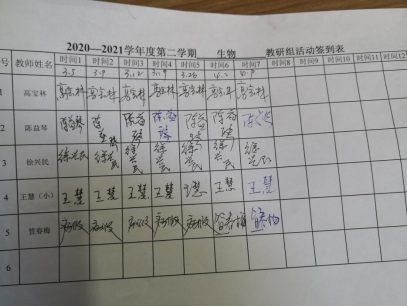 2020—2021学年度第二学期 生物 教研组活动签到表
号 教师姓名 时间1 时间2 时间3 时间4 时间5 时间6 时间7 时间8 时间9 时间10 时间11 时间12
3.5 3.9 3.12 3.19 3.26 4.2 4.9
1 高宝林 高宝林 高宝林 高宝林 高宝林 高宝林 高宝林 高宝林
2 陈益琴 陈益琴 陈益琴 陈益琴 陈益琴 陈益琴 陈益琴
3 徐兴民 徐兴民 徐兴民 徐兴民 徐兴民 徐兴民 徐兴民 徐兴民
4 王慧(小) 王慧 王慧 王慧 王慧 王慧 王慧 王慧
5 贺春梅 病假 病假 病假 病假 病假
6